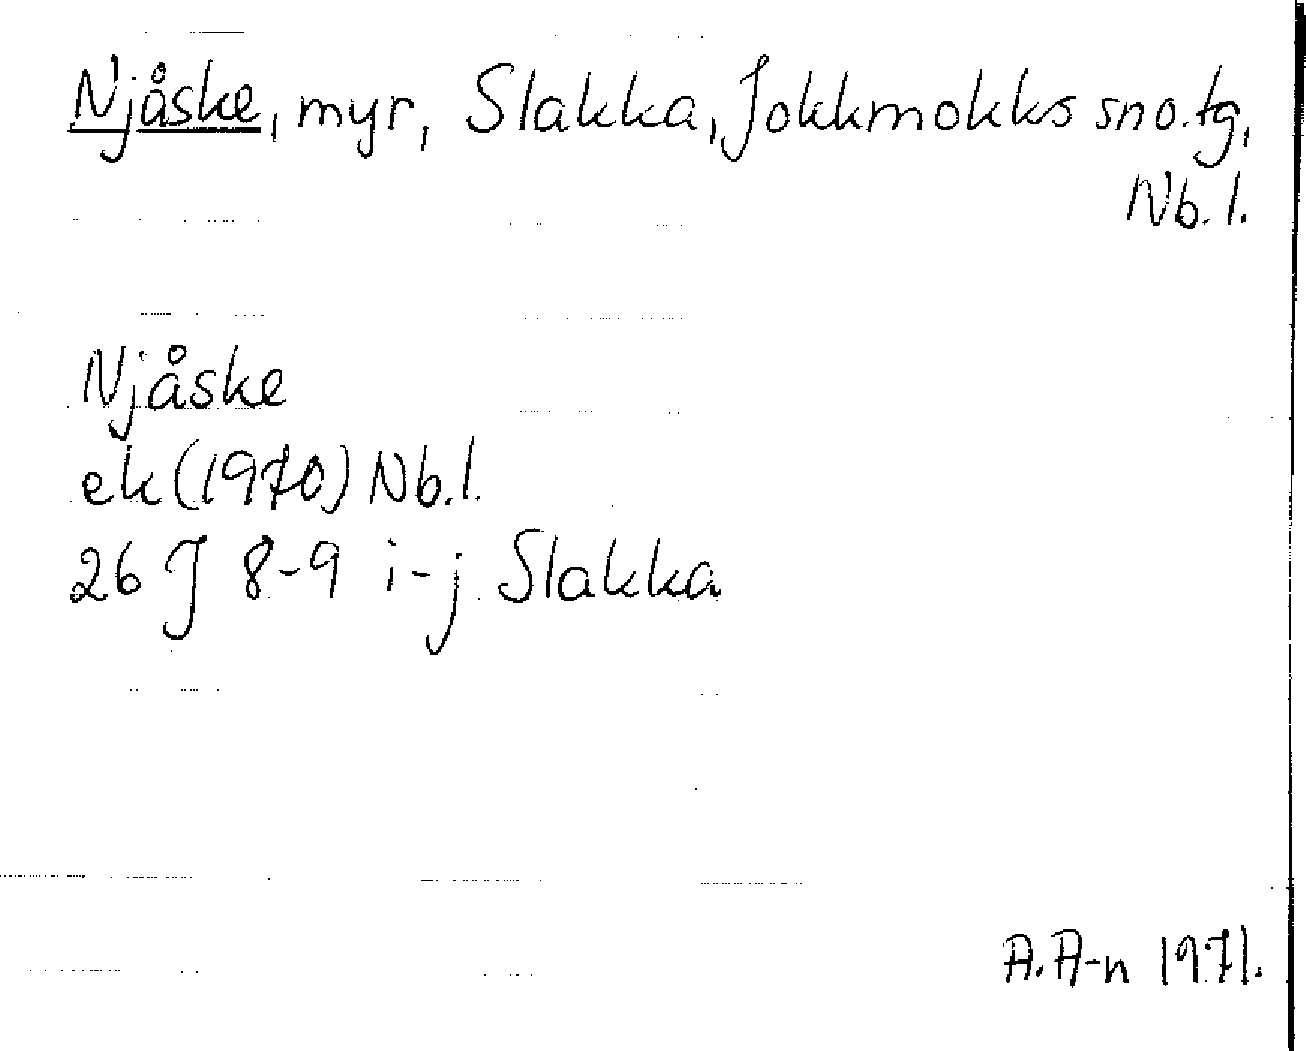 Njåske, myr, Slakka, Jokkmokks sno.tg,
Nb.l.
Njåske
ek (1970) Nb.l.
26 J 8-9 i-j Slakka
A.A-n 1971.